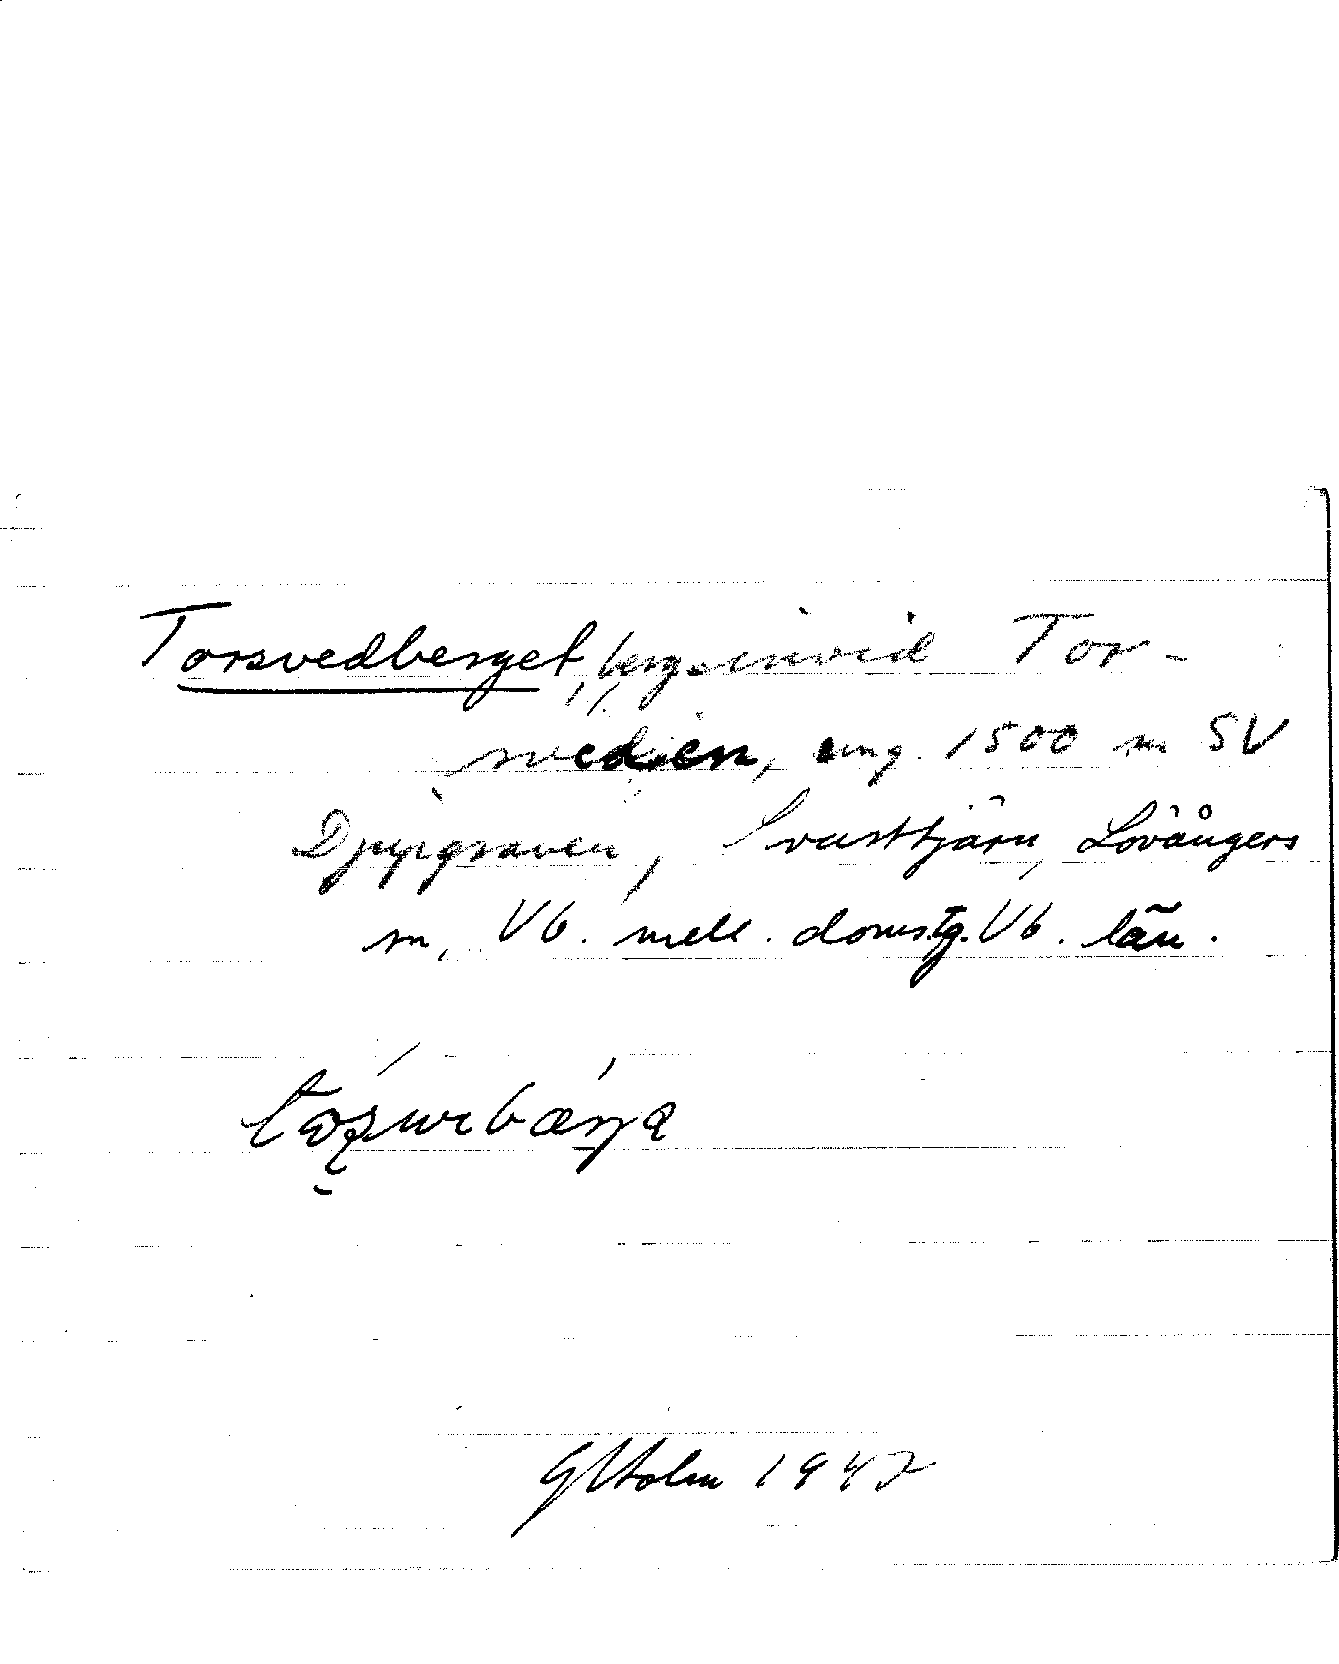 Torsvedberget, berg invid Tor-
svedjen, ung. 1500 m SV
Djupgraven, Svarttjärn, Lövångers
sn, Vb. mell. domstg. Vb. län.
GHolm 1947